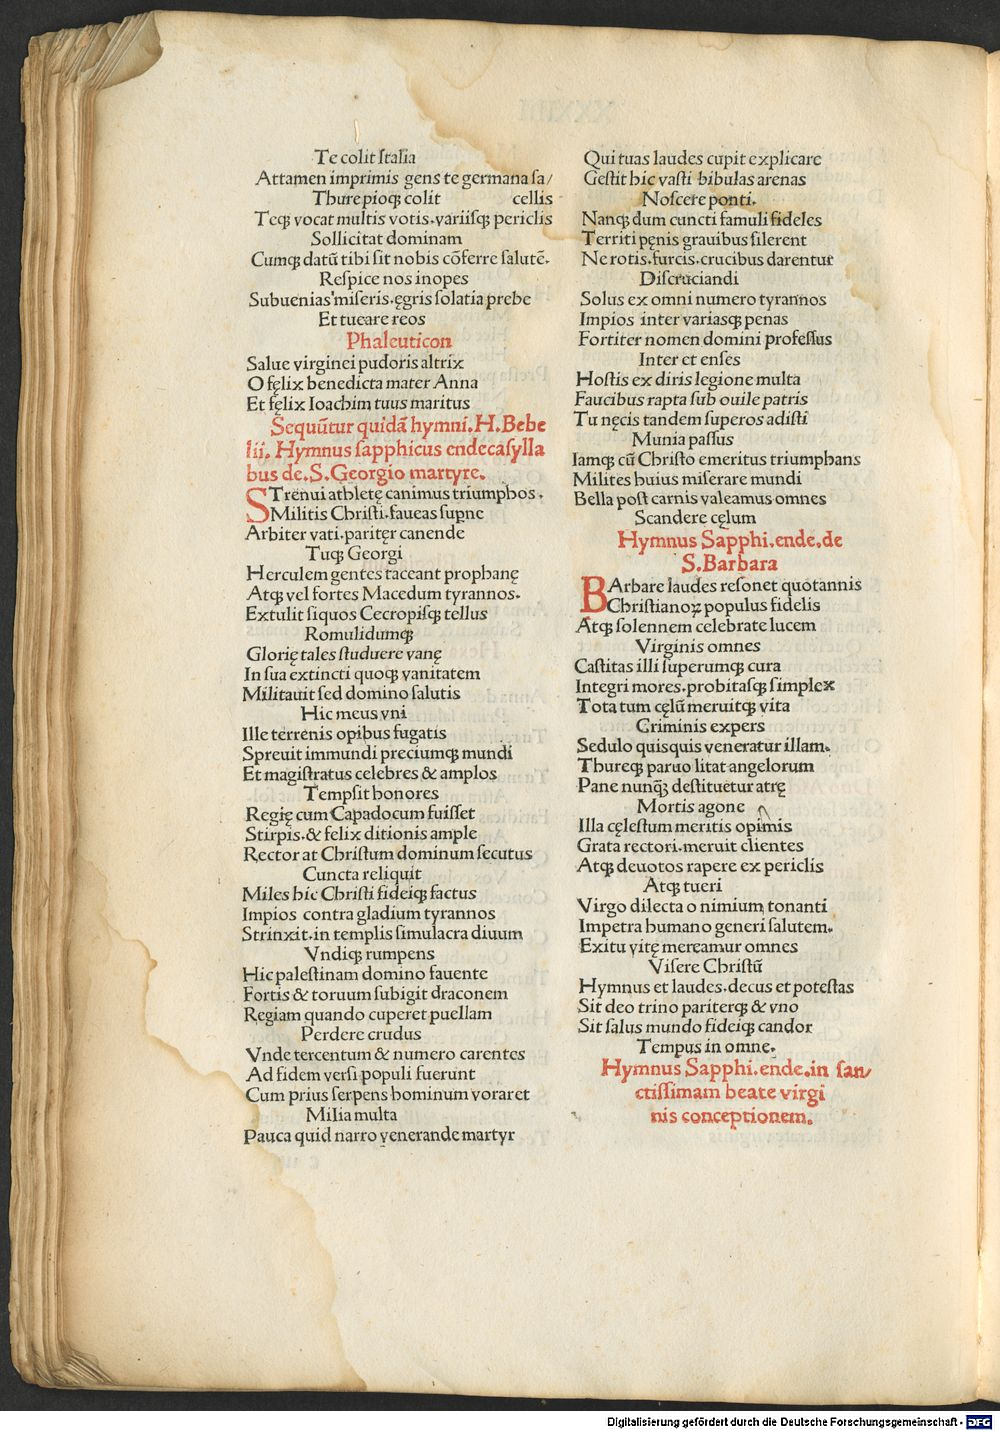 Te colit Italia
Attamen imprimis gens te germana sa/
Thure pioqꝫ colit cellis
Teqꝫ vocat multis votis.variisqꝫ periclis
Sollicitat dominam
Cumqꝫ datū tibi sit nobis cōferre salutē.
Respice nos inopes
Subuenias miseris.ęgris solatia prebe
Et tueare reos
Phaleuticon
Salue virginei pudoris altrix
O fęlix benedicta mater Anna
Et fęlix Ioachim tuus maritus
Sequūtur quidā hymni.H.Bebe
lii. Hymnus sapphicus endecasylla
bus de.S.Georgio martyre.
STrenui athletę canimus triumphos.
Militis Christi.faueas supne
Arbiter vati.paritęr canende
Tuqꝫ Georgi
Herculem gentes taceant prophanę
Atqꝫ vel fortes Macedum tyrannos.
Extulit siquos Cecropisqꝫ tellus
Romulidumqꝫ
Glorię tales studuere vanę
In sua extincti quoqꝫ vanitatem
Militauit sed domino salutis
Hic meus vni
Ille terrenis opibus fugatis
Spreuit immundi preciumqꝫ mundi
Et magistratus celebres & amplos
Tempsit honores
Regię cum Capadocum fuisset
Stirpis.& felix ditionis ample
Rector at Christum dominum secutus
Cuncta reliquit
Miles hic Christi fideiqꝫ factus
Impios contra gladium tyrannos
Strinxit.in templis simulacra diuum
Vndiqꝫ rumpens
Hic palestinam domino fauente
Fortis & toruum subigit draconem
Regiam quando cuperet puellam
Perdere crudus
Vnde tercentum & numero carentes
Ad fidem versi populi fuerunt
Cum prius serpens hominum voraret
Milia multa
Pauca quid narro venerande martyr
Qui tuas laudes cupit explicare
Gestit hic vasti bibulas arenas
Noscere ponti.
Nanqꝫ dum cuncti famuli fideles
Territi pęnis grauibus silerent
Ne rotis.furcis.crucibus darentur
Discruciandi
Solus ex omni numero tyrannos
Impios inter variasqꝫ penas
Fortiter nomen domini professus
Inter et enses
Hostis ex diris legione multa
Faucibus rapta sub ouile patris
Tu nęcis tandem superos adisti
Munia passus
Iamqꝫ cū Christo emeritus triumphans
Milites huius miserare mundi
Bella post carnis valeamus omnes
Scandere cęlum
Hymnus Sapphi.ende.de
S.Barbara
BArbare laudes resonet quotannis
Christianoꝝ populus fidelis
Atqꝫ solennem celebrate lucem
Virginis omnes
Castitas illi superumqꝫ cura
Integri mores.probitasqꝫ simplex
Tota tum cęlū meruitqꝫ vita
Criminis expers
Sedulo quisquis veneratur illam.
Thureqꝫ paruo litat angelorum
Pane nunqꝫ̄ destituetur atrę
Mortis agone
Illa cęlestum meritis opimis
Grata rectori.meruit clientes
Atqꝫ deuotos rapere ex periclis
Atqꝫ tueri
Virgo dilecta o nimium tonanti
Impetra humano generi salutem.
Exitu vitę mereamur omnes
Visere Christū
Hymnus et laudes.decus et potestas
Sit deo trino pariterqꝫ & vno
Sit salus mundo fideiqꝫ candor
Tempus in omne.
Hymnus Sapphi.ende.in san/
ctissimam beate virgi
nis conceptionem.
Digitalisierung gefördert durch die Deutsche Forschungsgemeinschaft - DFG